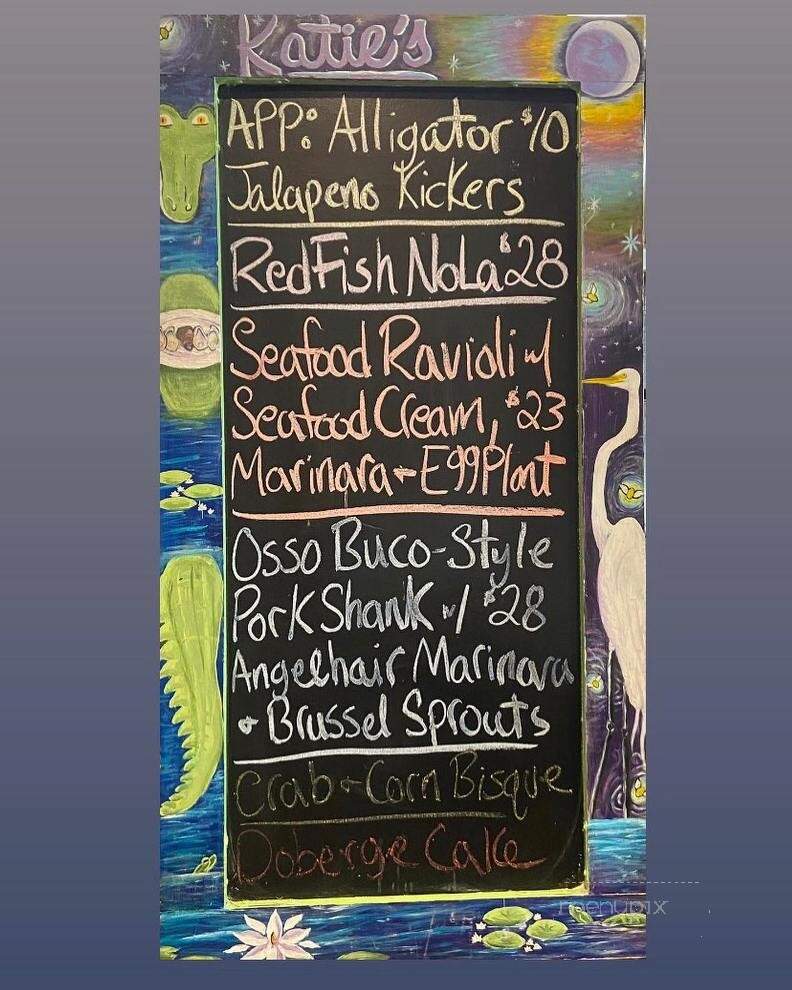 Katie's
APP: Alligator $10
Jalapeno Kickers
RedFish NoLa $28
Seafood Ravioli w/
Seafood Cream, $23
Marinara + EggPlant
Osso Buco-Style
Pork Shank w/ $28
Angelhair Marinara
+ Brussel Sprouts
Crab + Corn Bisque
Doberge Cake
menupix